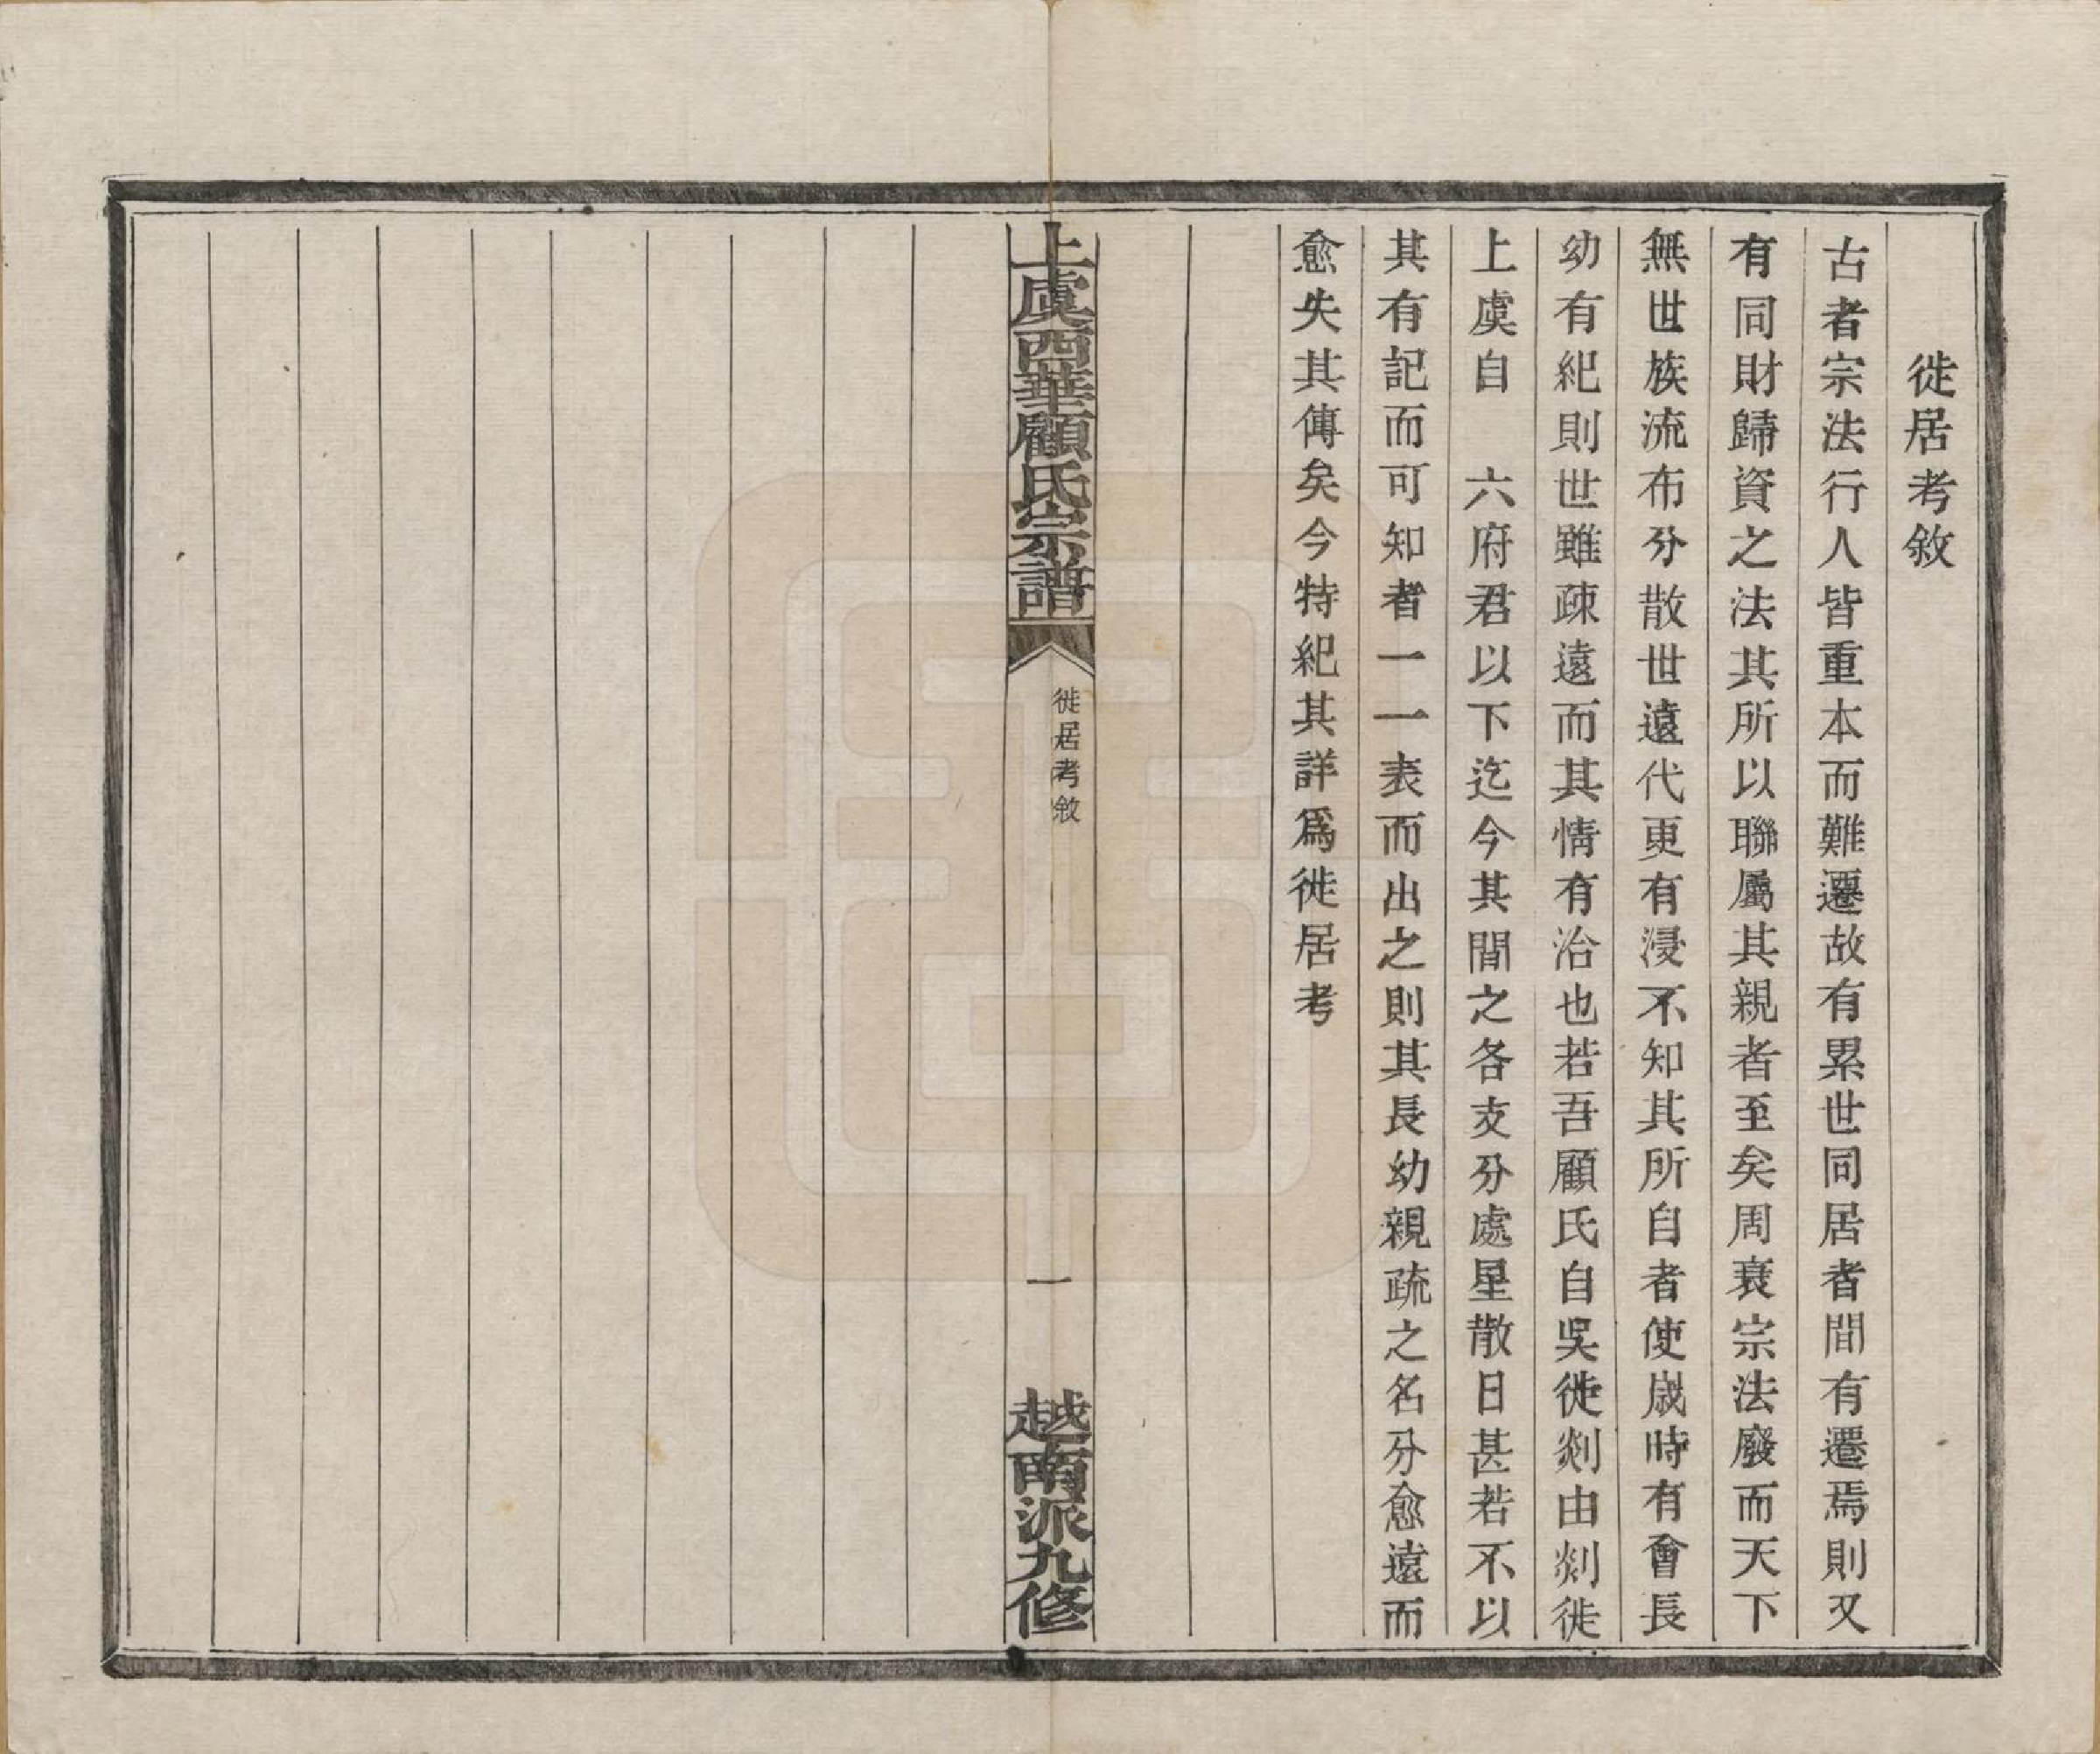 徙居考敘
古者宗法行人皆重本而難遷故有累世同居者間有遷焉則又
有同財歸資之法其所以聯屬其親者至矣周衰宗法廢而天下
無世族流布分散世遠代更有浸不知其所自者使歲時有會長
幼有紀則世雖疎遠而其情有洽也若吾顧氏自吳徙剡由剡徙
上虞自　六府君以下迄今其間之各支分處星散日甚若不以
其有記而可知者一一表而出之則其長幼親疏之名分愈遠而
愈失其傳矣今特紀其詳爲徙居考
上虞西華顧氏宗譜
徙居考敘
一
越南派九修